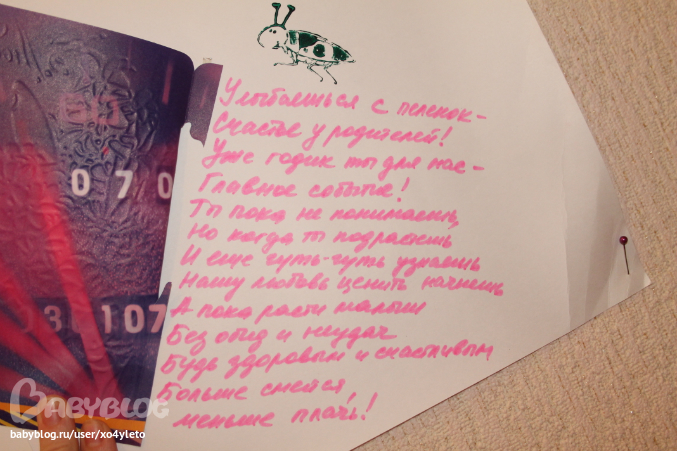 Улыбаешься с пеленок-
Счастье у родителей!
Уже годик ты для нас-
Главное событие!
Ты пока не понимаешь,
Но когда ты подрастешь
И еще чуть-чуть узнаешь
Нашу любовь ценить начнешь
А пока расти малыш
Без обид и неудач
Будь здоровым и счастливым
Больше смейся,
меньше плачь!
0 7 0
107
BABYBLOG
babyblog.ru/user/xo4yleto